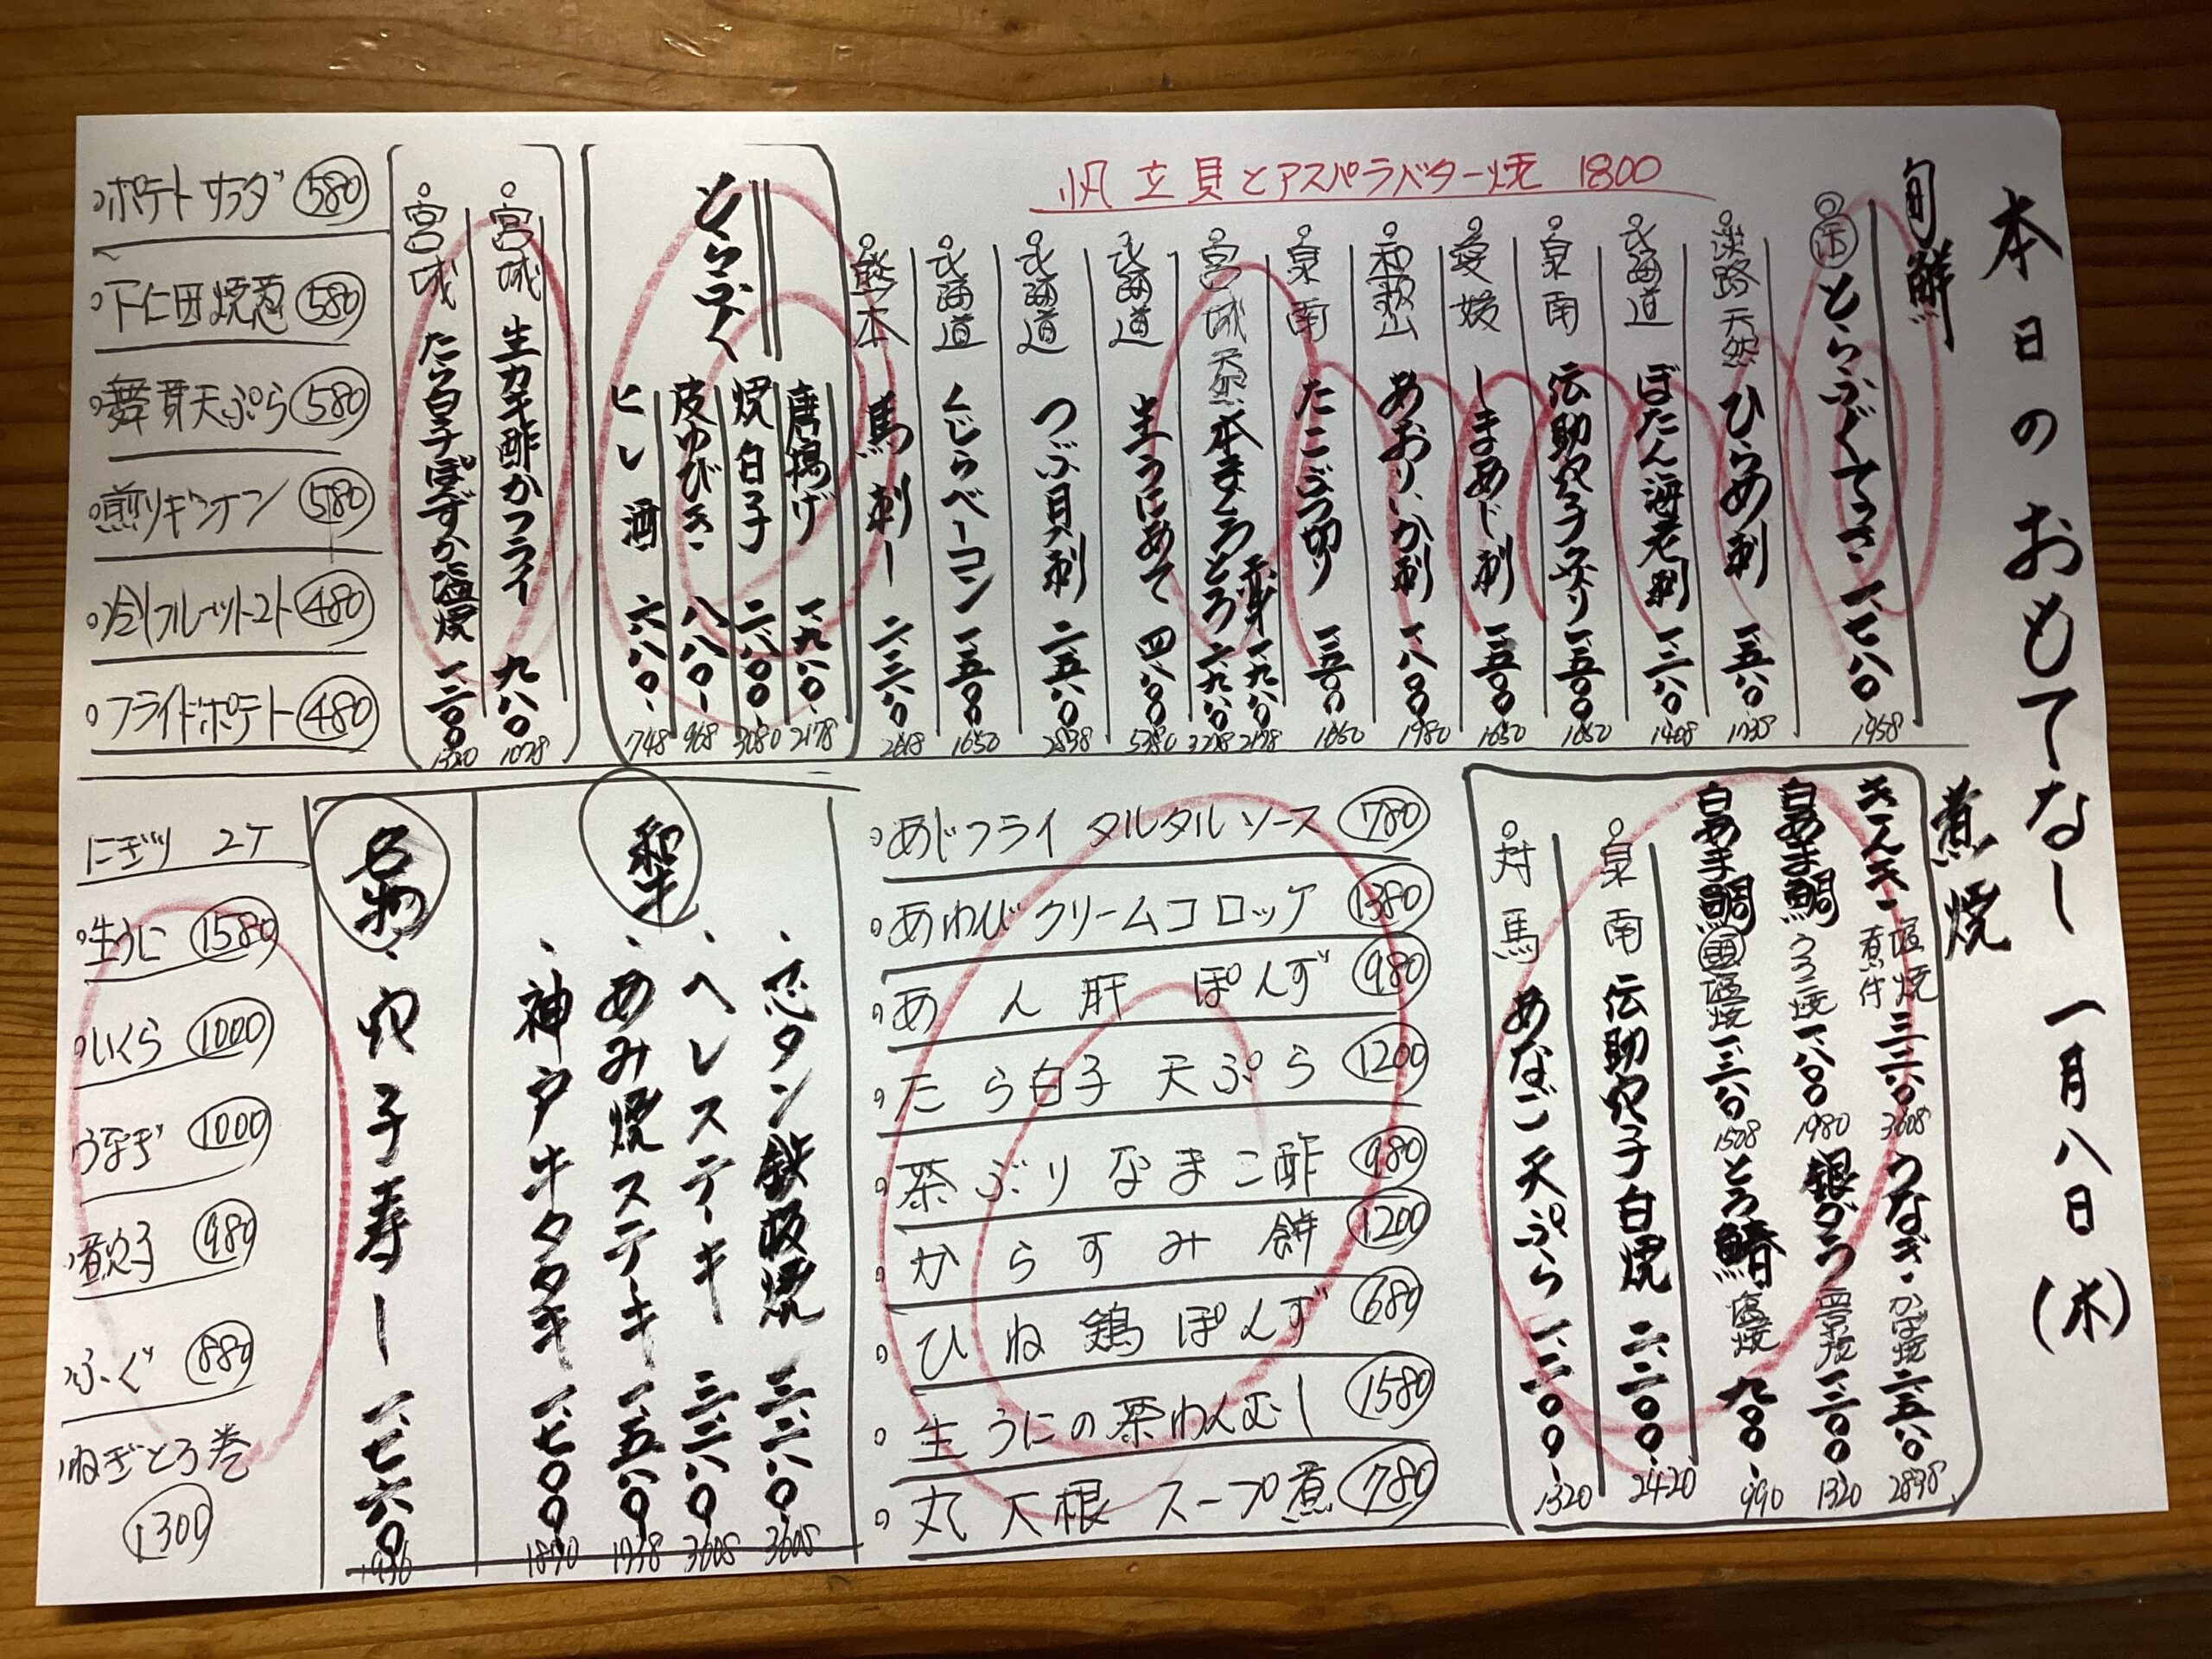 本日のおもてなし 一月八日(木)
旬鮮
帆立貝とアスパラバター焼 1800
活 とらふぐてっさ 一、七八〇 1958
淡路天然 ひらめ刺 一、五八〇 1738
北海道 ぼたん海老刺 一、二八〇 1408
泉南 伝助穴子 一、五〇〇 1650
愛媛 しまあじ刺 一、五〇〇 1650
和歌山 あおりいか刺 一、八〇〇 1980
泉南 たこぶつ切り 一、五〇〇 1650
宮城 天然 本まぐろ 赤身 一、九八〇 2178
とろ 二、九八〇 3278
北海道 生うにあて 四、八〇〇 5280
北海道 つぶ貝刺 二、五八〇 2838
北海道 くじらベーコン 一、五〇〇 1650
熊本 馬刺し 二、三八〇 2618
とらふぐ
唐揚げ 一、九八〇 2178
焼白子 二、八〇〇 3080
皮ゆびき 八八〇 968
ヒレ酒 六八〇 748
宮城 生カキ酢かフライ 九八〇 1078
宮城 たら白子ぽんずか塩焼 一、二〇〇 1320
ポテトサラダ 580
下仁田焼葱 580
舞茸天ぷら 580
煎りギンナン 580
冷しフルーツトマト 480
フライドポテト 480
煮焼
きんき 塩焼 煮付 三、二八〇 3608
うなぎ かば焼 二、五八〇 2838
白あま鯛 うろこ焼 一、八〇〇 1980
銀ダラ 西京焼 一、二〇〇 1320
白あま鯛 頭 塩焼 1508
とろ鯖 塩焼 九〇〇 990
泉南 伝助穴子白焼 二、二〇〇 2420
対馬 あなご天ぷら 一、二〇〇 1320
あじフライ タルタルソース 780
あわびクリームコロッケ 1380
あん肝ぽんず 980
たら白子天ぷら 1200
茶ぶりなまこ酢 980
からすみ餅 1200
ひね鶏ぽんず 680
生うにの茶わんむし 1580
丸大根スープ煮 780
和牛
芯タン鉄板焼 三、二八〇 3608
ヘレステーキ 三、二八〇 3608
あみ焼ステーキ 一、五八〇 1738
神戸牛タタキ 一、七〇〇 1870
名物
穴子寿し 一、七六〇 1936
にぎり 2ケ
生うに 1580
いくら 1000
うなぎ 1000
煮穴子 980
ふぐ 880
ねぎとろ巻 1300